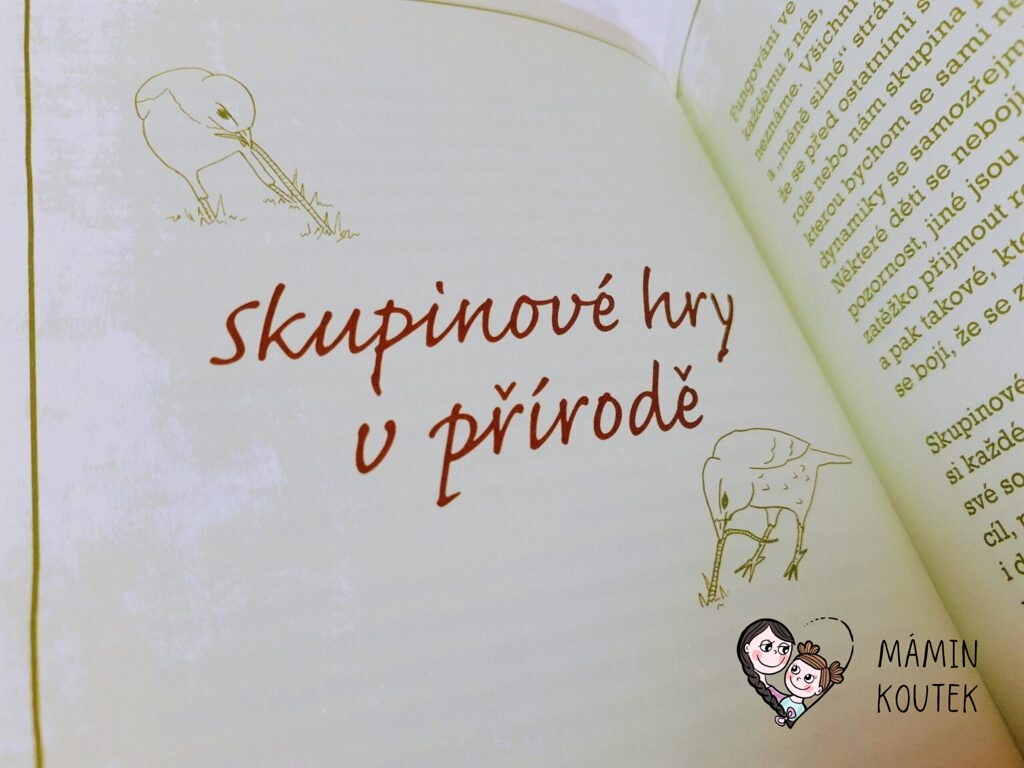 skupinové hry
v přírodě
Fungování ve
každému z nás,
neznáme. Všichni
a „méně silné“ strán
že se před ostatními s
role nebo nám skupina
kterou bychom se sami ne
dynamiky se samozřejm
Některé děti se nebojí
pozornost, jiné jsou
zatěžko přijmout r
a pak takové, kt
se bojí, že se z
Skupinové
si každé
své so
cíl,
i d
MÁMIN
KOUTEK